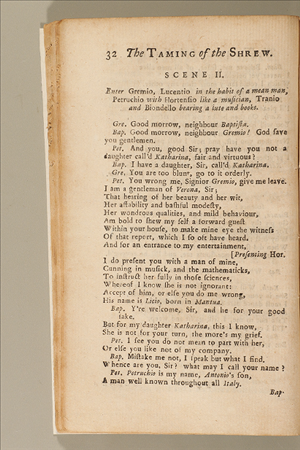 32 The TAMING of the SHREW.
SCENE II.
Enter Gremio, Lucentio in the habit of a mean man,
Petruchio with Hortensio like a musician, Tranio
and Biondello bearing a lute and books.
Gre. Good morrow, neighbour Baptista.
Bap. Good morrow, neighbour Gremio: God save
you gentlemen.
Pet. And you, good Sir; pray have you not a
daughter call'd Katharina, fair and virtuous?
Bap. I have a daughter, Sir, call'd Katharina.
Gre. You are too blunt, go to it orderly.
Pet. You wrong me, Signior Gremio, give me leave.
I am a gentleman of Verona, Sir;
That hearing of her beauty and her wit,
Her affability and bashful modesty,
Her wondrous qualities, and mild behaviour,
Am bold to shew my self a forward guest
Within your house, to make mine eye the witness
Of that report, which I so oft have heard.
And for an entrance to my entertainment,
[Presenting Hor.
I do present you with a man of mine,
Cunning in musick, and the mathematicks,
To instruct her fully in those sciences,
Whereof I know she is not ignorant:
Accept of him, or else you do me wrong,
His name is Licio, born in Mantua.
Bap. Y're welcome, Sir, and he for your good
sake.
But for my daughter Katharina, this I know,
She is not for your turn, the more's my grief.
Pet. I see you do not mean to part with her,
Or else you like not of my company.
Bap. Mistake me not, I speak but what I find.
Whence are you, Sir? what may I call your name?
Pet. Petruchio is my name, Antonio's son,
A man well known throughout all Italy.
Bap.